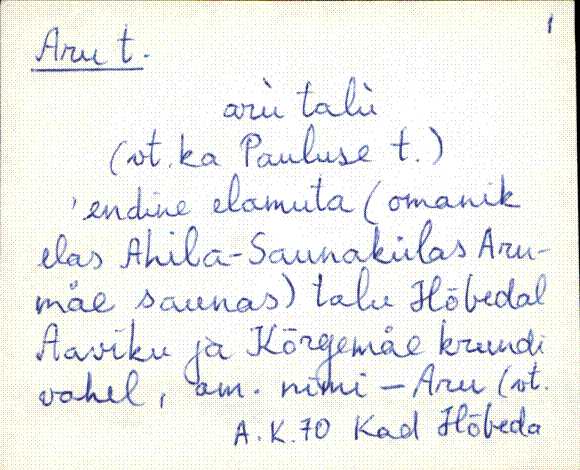 1
Aru t.
arù talù
(vt. ka Pauluse t.)
'endine elamuta (omanik
elas Ahila-Saunakülas Aru-
mäe saunas) talu Hõbedal
Aaviku ja Kõrgemäe krundi
vahel, am. nimi – Aru (vt.
A.K.70 Kad Hõbeda